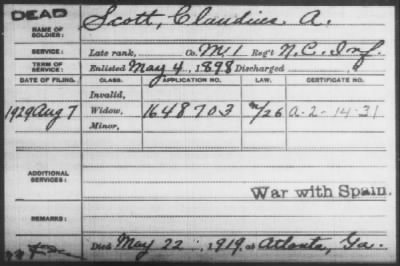 DEAD
NAME OF SOLDIER: Scott, Claudius A.
SERVICE: Late rank, Co. M 1 Reg't N.C. Inf.
TERM OF SERVICE: Enlisted May 4, 1898 Discharged
DATE OF FILING. CLASS. APPLICATION NO. LAW. CERTIFICATE NO.
Invalid,
1929 Aug 7 Widow, 1648703 m/26 a-2-14-31
Minor,
ADDITIONAL SERVICES:
War with Spain.
REMARKS:
Died May 22, 1919, at Atlanta, Ga.